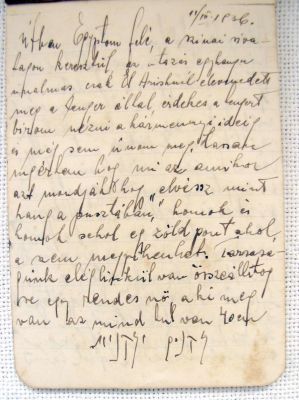 11/III 1926.
Útban Egyptom felé, a szinai siva-
tagon keresztül, az utazás egyhangu
unalmas csak El Arishnál elevenedett
meg a tenger által érdekes a tengert
birom nézni a hármennyi ideig
és még sem únom meg. Lassan
megértem hog mi az amikor
azt mondják hog "elvész mint
hang a pusztában," homok és
homok sehol eg zöld pont ahol
a szem megpihenhet. Társasá-
günk elég furcsán van összeállitva
se egy rendes nő, a ki meg
van az mind túl van 40en